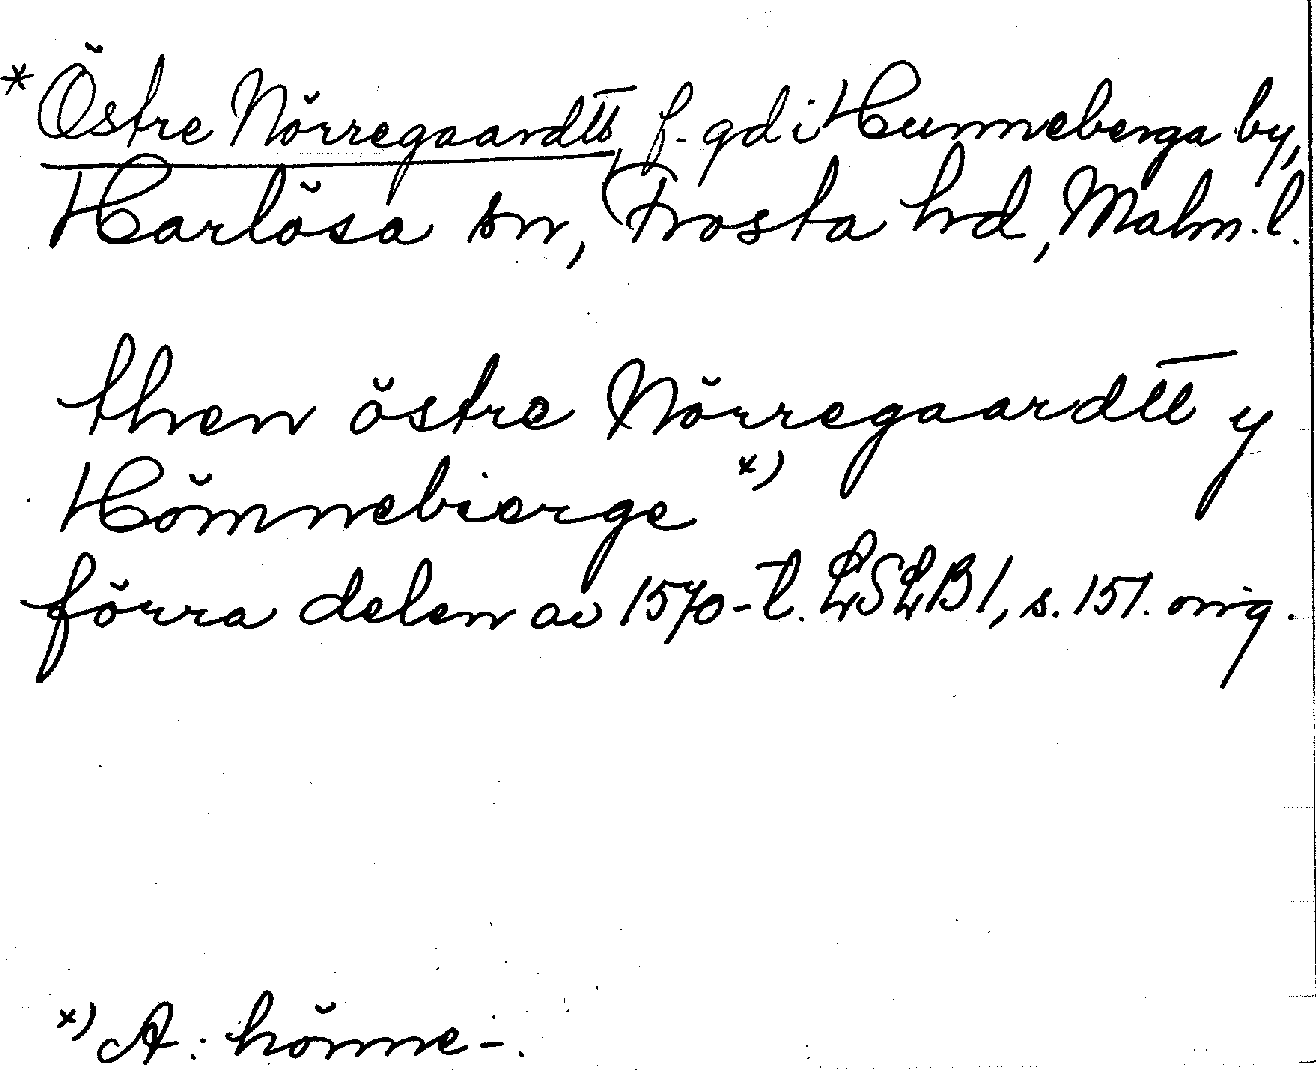 * Östre Nörregaardtt, f. gd i Hunneberga by,
Harlösa sn, Frosta hd, Malm. l.
then östre Nörregaardtt y
Hömnebierge *)
förra delen av 1570-t. LSLB1, s. 151. orig.
*) A: hönne-.